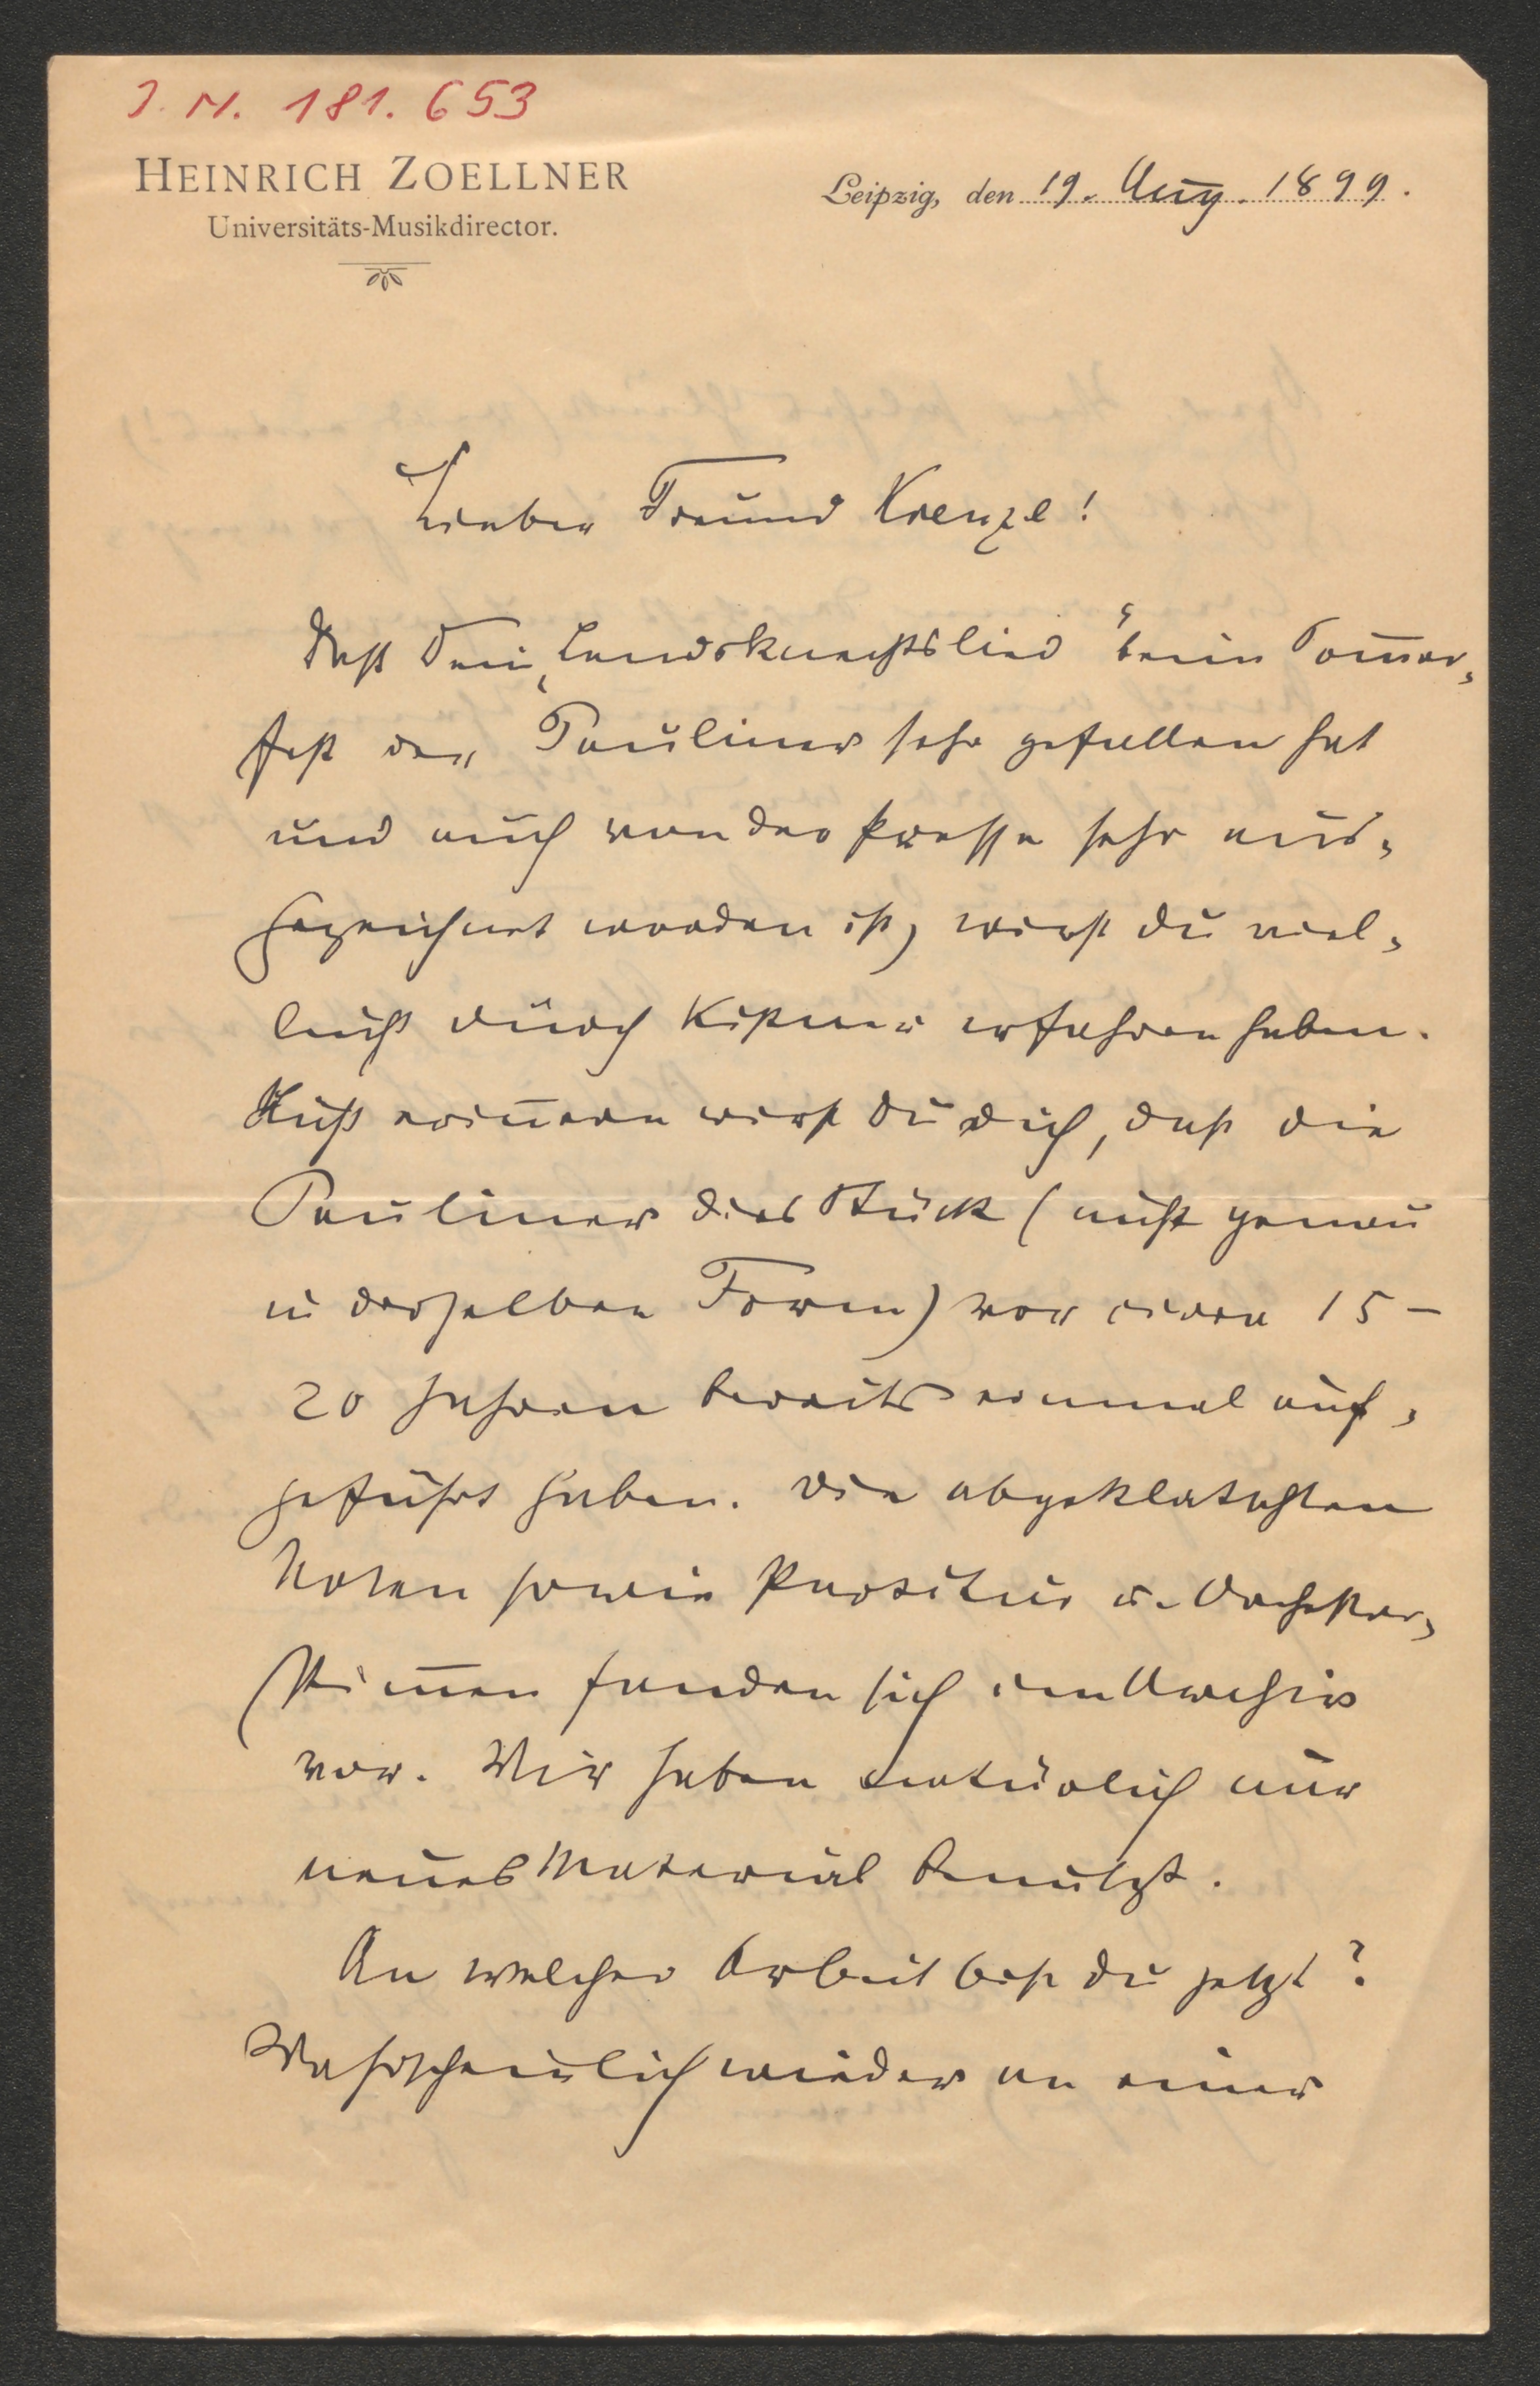 J. N. 181.653
HEINRICH ZOELLNER
Universitäts-Musikdirector.
Leipzig, den 19. Aug. 1899.
Lieber Freund Krenzl!
Daß Dein „Landsknechtslied“ beim Som̅er-
fest der Pauliner sehr gefallen hat
und auch von der Presse sehr aus-
gezeichnet worden ist, wirst du viel-
leicht durch Kistner erfahren haben.
Nicht erin̅ern wirst Du dich, daß die
Pauliner dies Stück (nicht genau
in derselben Form) vor circa 15-
20 Jahren bereits einmal auf-
geführt haben. Die abgeklatschten
Noten sowie Partitur u. Orchester-
stim̅en fanden sich im Archiv
vor. Wir haben natürlich nur
neues Material benutzt.
An welcher Arbeit bist du jetzt?
Wahrscheinlich wieder an einer